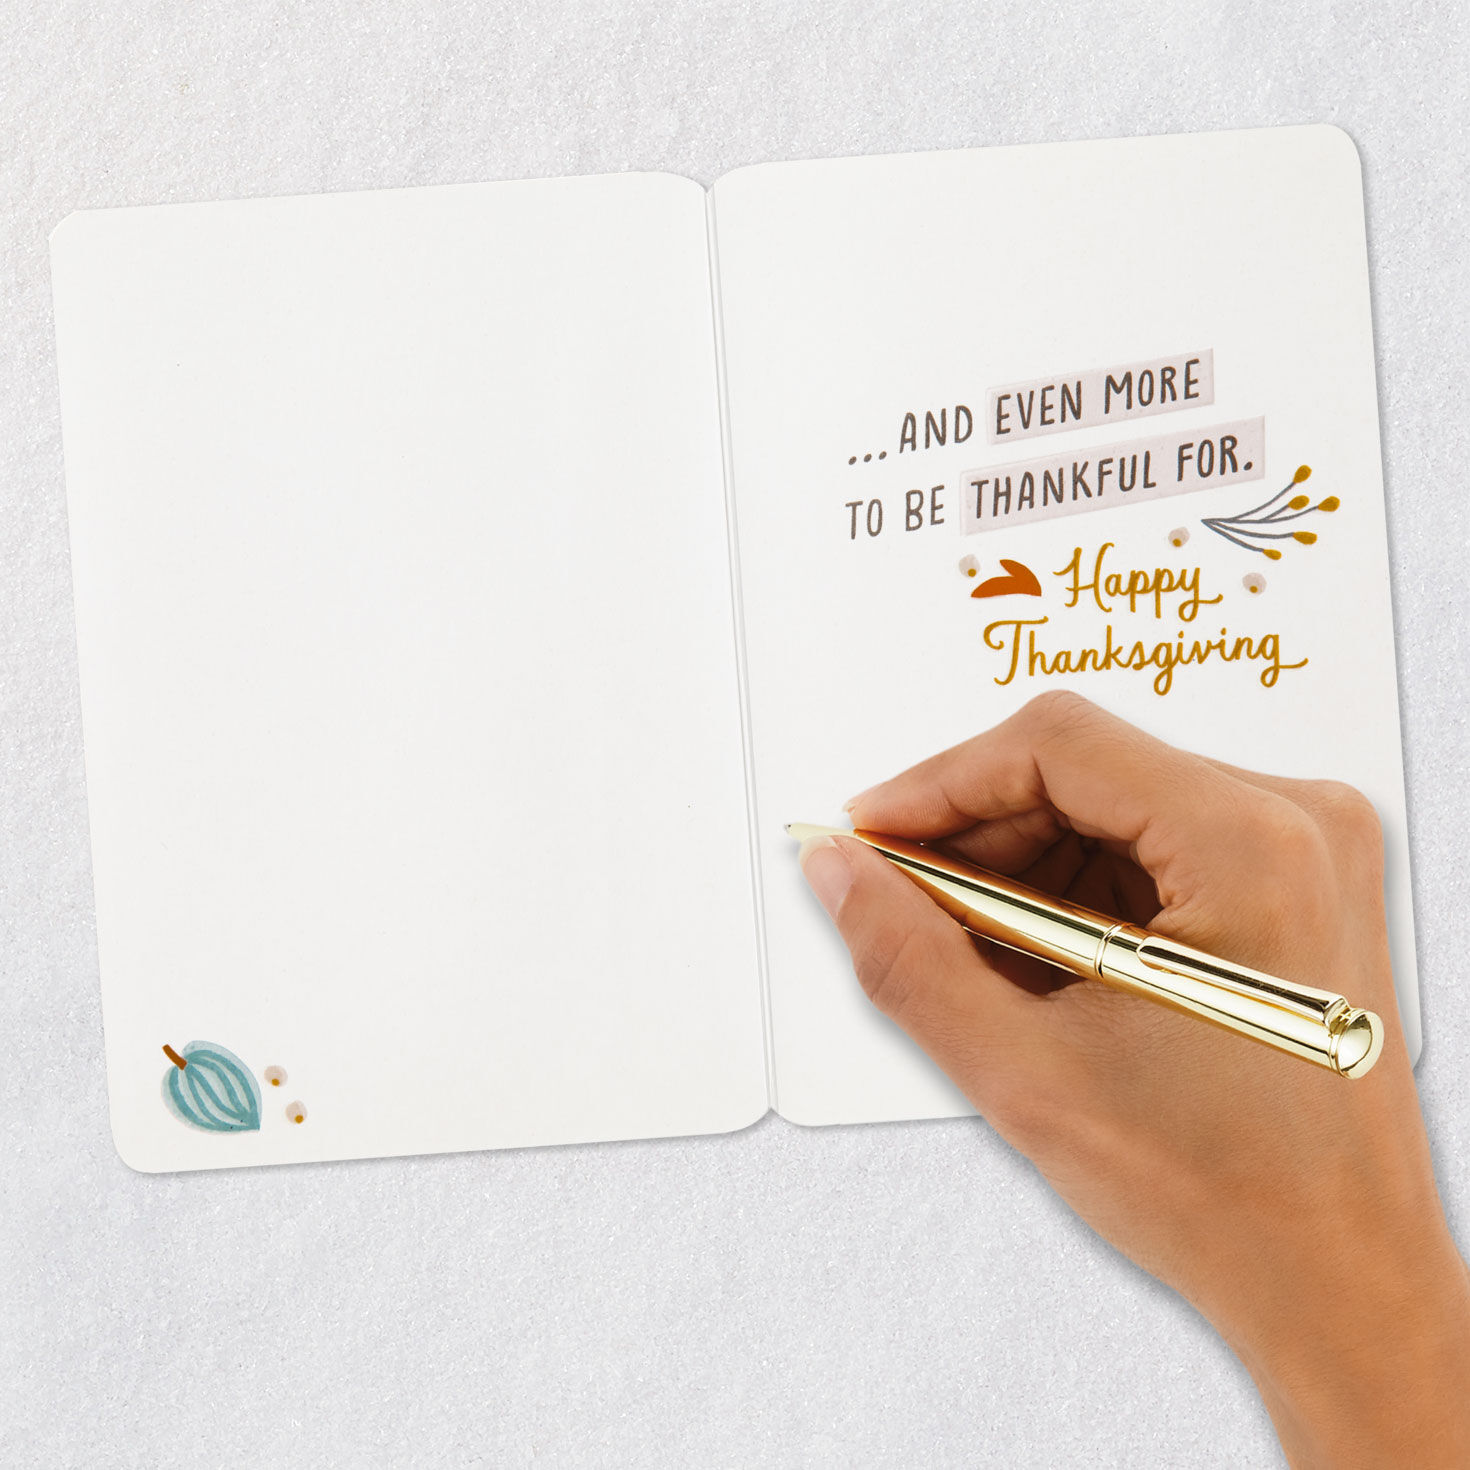 ...AND EVEN MORE
TO BE THANKFUL FOR.
Happy
Thanksgiving